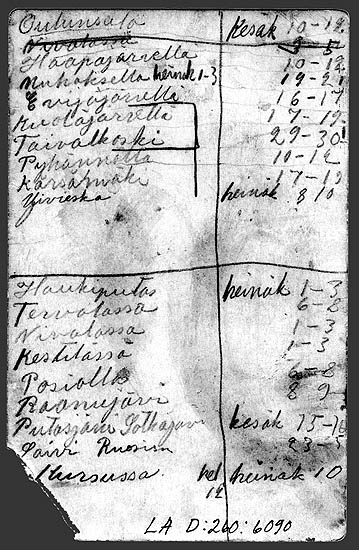 Oulunsalo Kesäk 10-12
Nivalassa 3 5
Haapajärvellä 10-12
Muhoksella heinäk 1-3 19-21
Evijäjärvellä 16-17
Kuolajärvellä 17-19
Taivalkoski 29-30
Pyhännällä 10-12
Kärsämäki 17-19
Ylivieska heinäk 8 10
Haukiputas heinäk 1-3
Tervolassa 6-8
Nivalassa 1-3
Kestilässä 1-3
Posiolla 6-8
Raanujärvi 8 9
Pudasjärvi Sotkajärvi kesäk 15-16
Päivi Ruosun 23-5
Kursussa hel 12 heinäk 10
LA D:260:6090